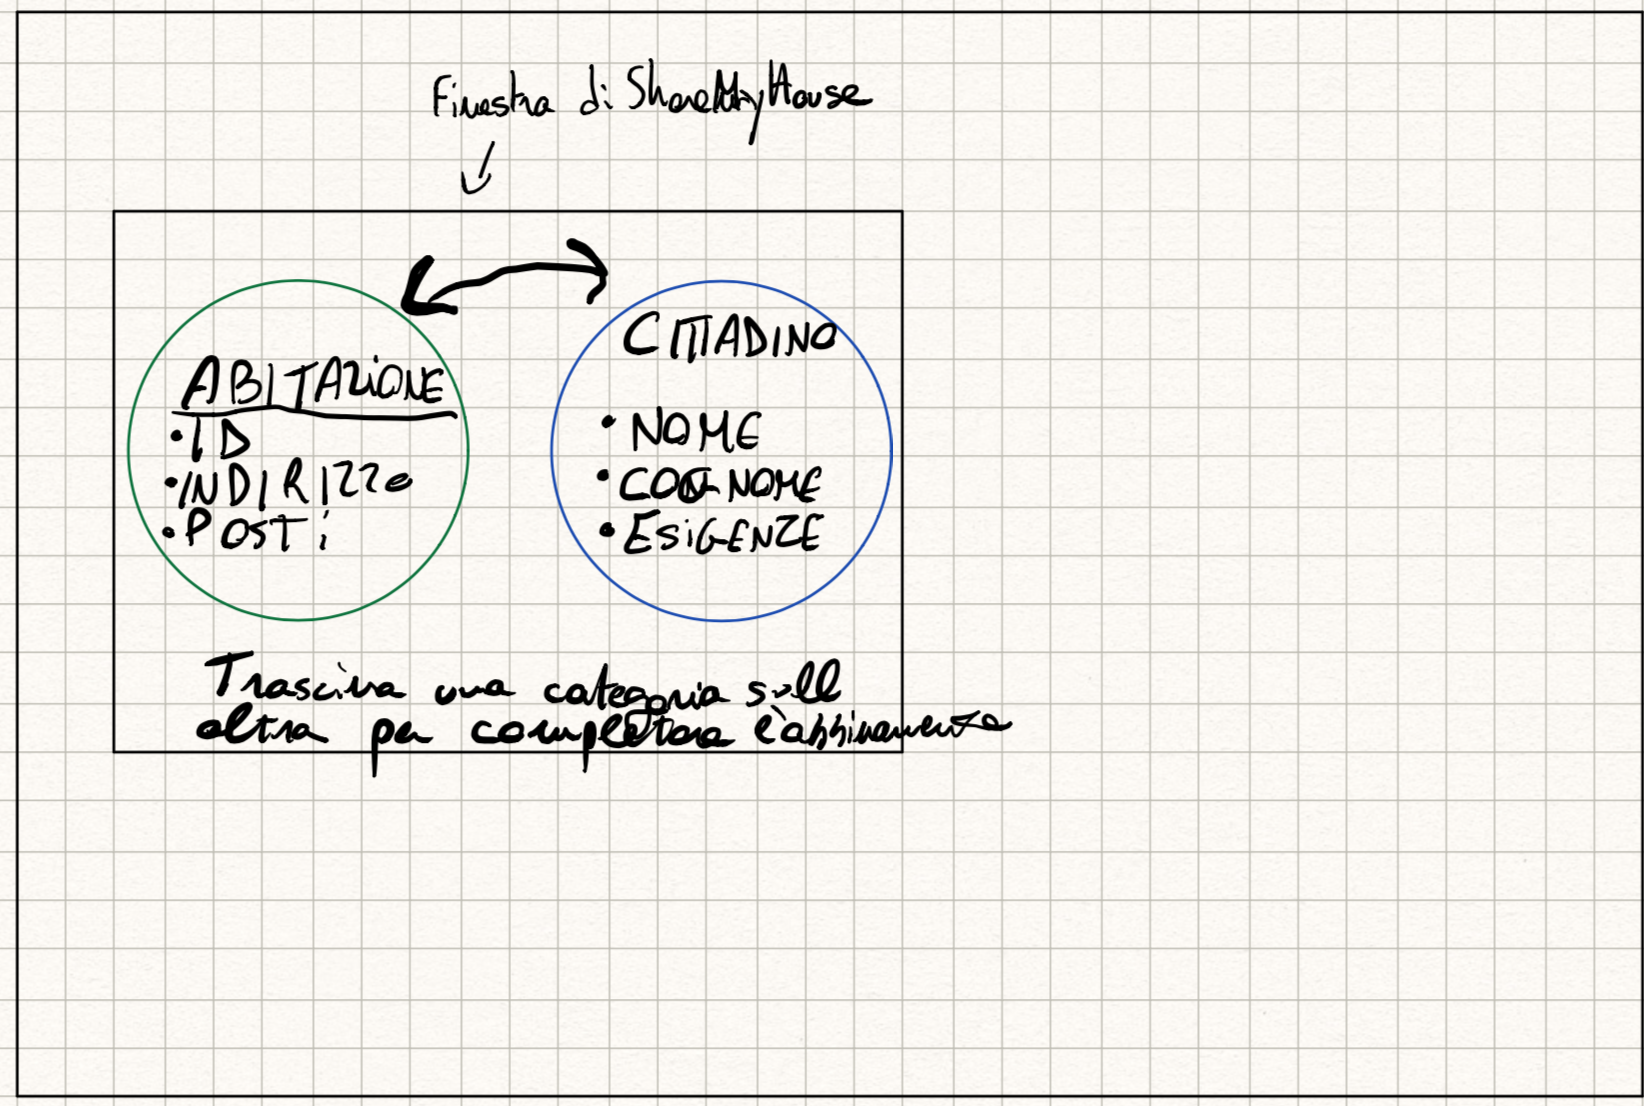 Finestra di ShareMyHouse
ABITAZIONE
• ID
• INDIRIZZo
• POSTi
CITTADINO
• NOME
• COGNOME
• ESiGENZE
Trascina una categoria sull
altra per completare l'abbinamento